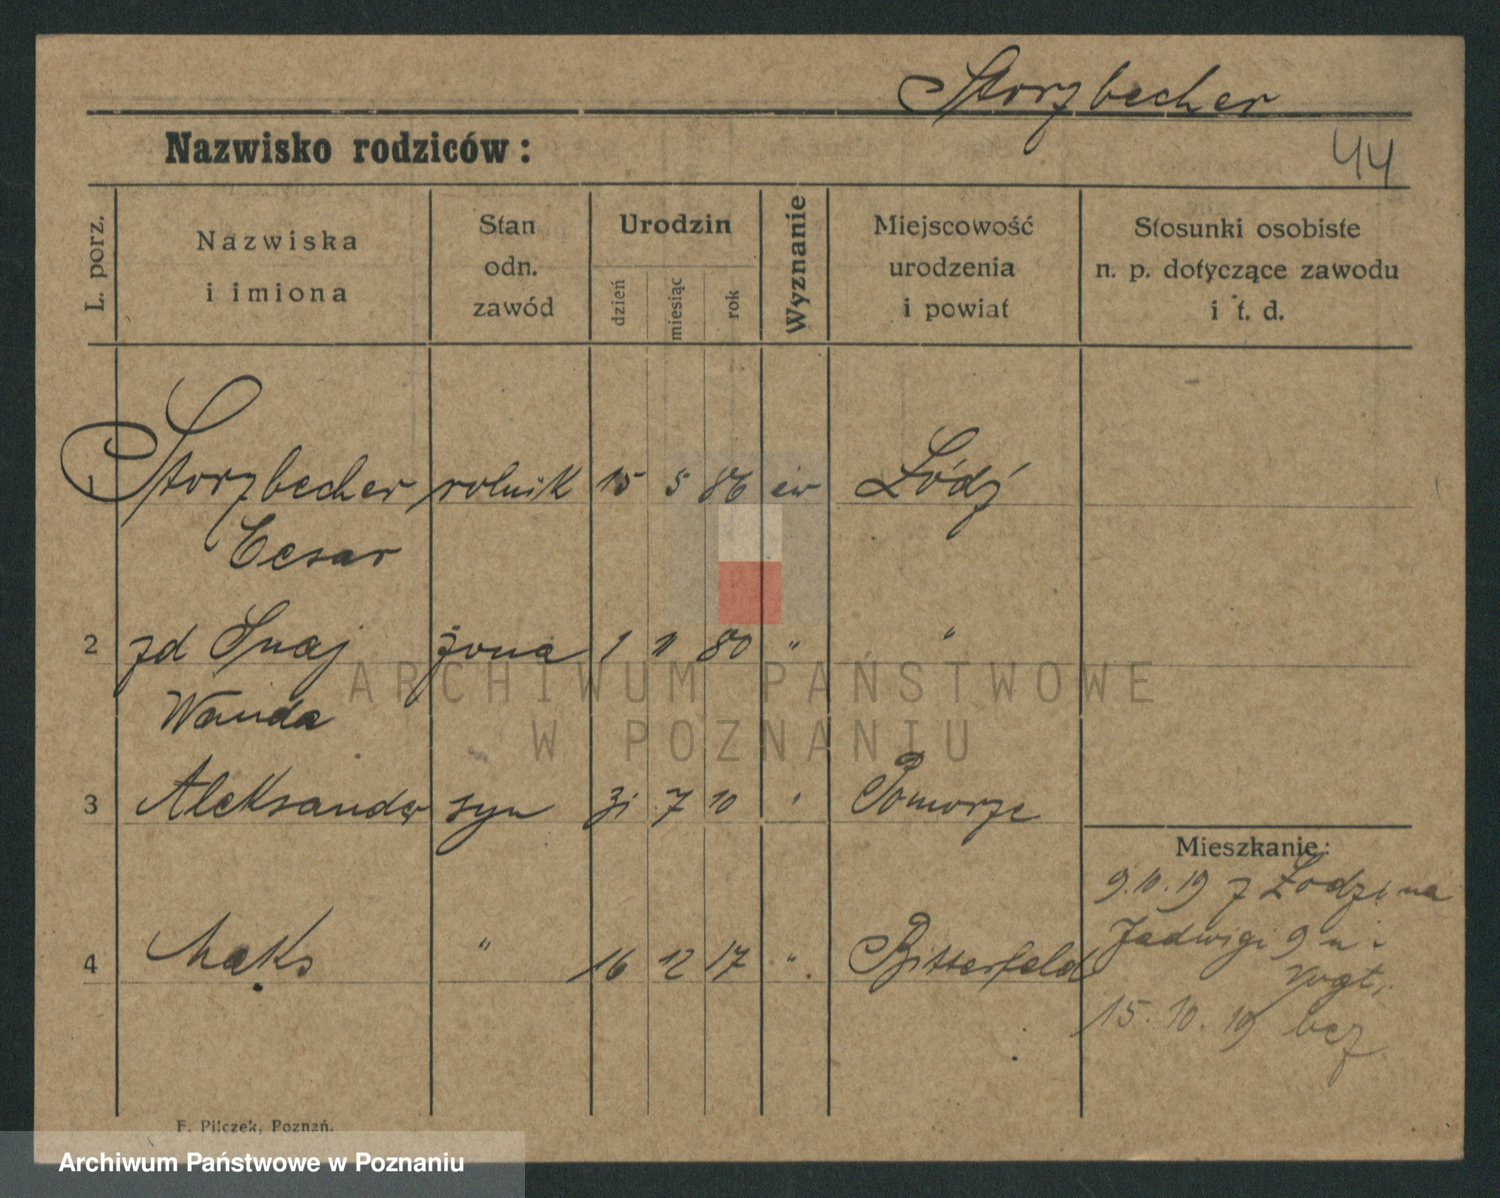 Storzbecher
Nazwisko rodziców:
44
L. porz.
Nazwiska
i imiona
Stan
odn.
zawód
Urodzin
dzień
miesiąc
rok
Wyznanie
Miejscowość
urodzenia
i powiat
Stosunki osobiste
n. p. dotyczące zawodu
i t. d.
1 Storzbecher rolnik 15 5 86 ew Łódź
Cesar
2 zd Snaj żona 1 11 80 " "
Wanda
3 Aleksander syn 31 7 10 " Pomorze
4 Maks " 16 12 17 " Bitterfeld
Mieszkanie:
9.10.19 z Łodzi na
Jadwigi 9 u
Vogt,
15.10.19 bez
F. Pilczek, Poznań.
ARCHIWUM PAŃSTWOWE
W POZNANIU
Archiwum Państwowe w Poznaniu